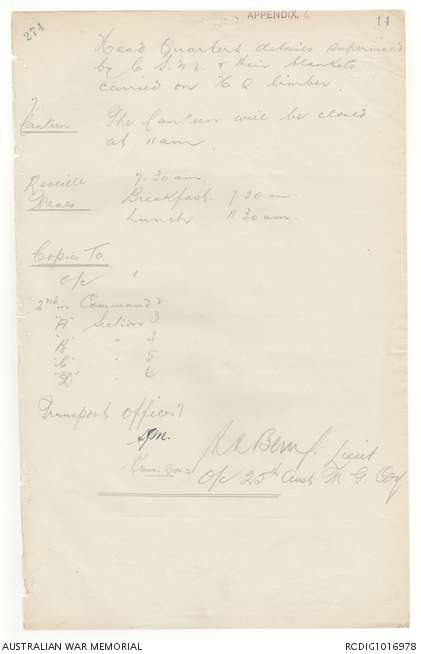 274
APPENDIX. 6
14
Head Quarters details supervised
by C S M & their blankets
carried on H Q limber.
7.
Canteen The Canteen will be closed
at 11 am.
Reveille 7.30 am.
Meals Breakfast 7.30 am
Lunch 11.30 am.
Copies To
O/C 1
2nd in Command 2
"A" Section 3
"B" " 4
"C" " 5
"D" " 6
Transport officer 7
Lieut
O/C 25th Aust M. G. Coy
AUSTRALIAN WAR MEMORIAL
RCDIG1016978